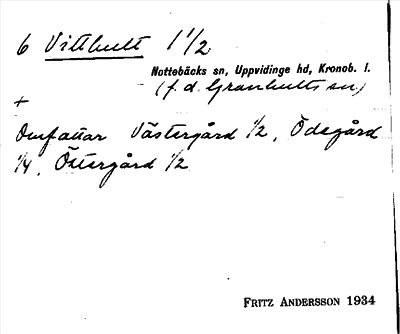 6 Vitthult 1 1/2
Nottebäcks sn, Uppvidinge hd, Kronob. l.
(f. d. Granhults sn)
+
Omfattar Västergård 1/2, Ödegård
1/4, Östergård 1/2
FRITZ ANDERSSON 1934